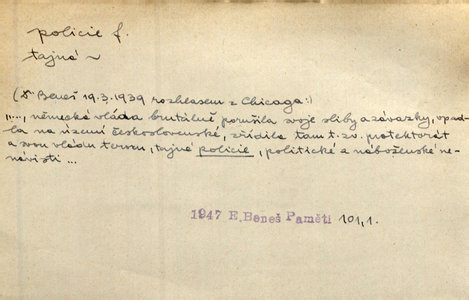 policie f.
tajná ~
(Dr Beneš 19.3.1939 rozhlasem z Chicaga:)
"..., německá vláda brutálně porušila svoje sliby a závazky, vpad-
la na území československé, zřídila tam t.zv. protektorát
a svou vládu teroru, tajné policie, politické a náboženské ne-
návisti ...
1947 E. Beneš Paměti 101,1.